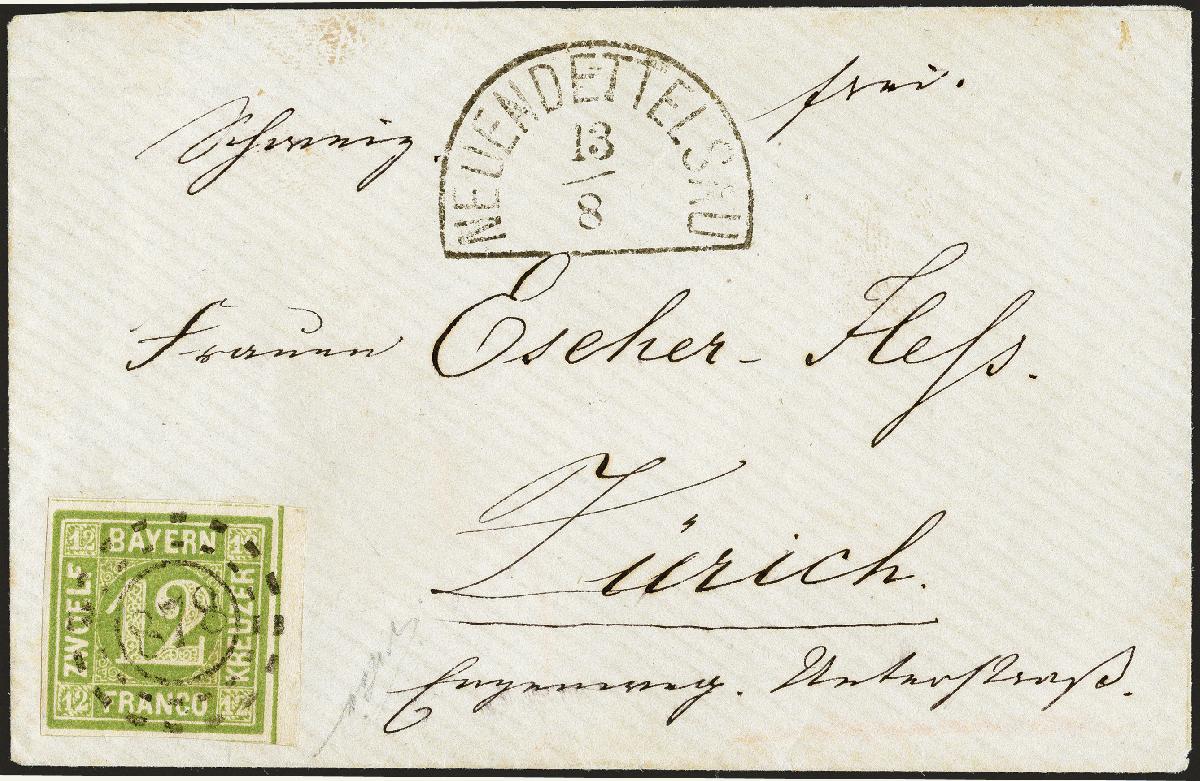 Schweiz. frei.
NEUENDETTELSAU
13
8
Frauen Escher-Heß.
Zürich.
Engenweg. Unterstraß.
12 BAYERN 12
ZWOELF 12 KREUZER
678
12 FRANCO 12